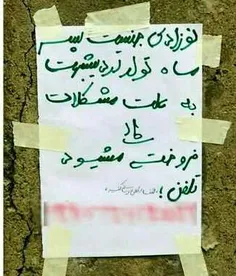 نوزادی جنسیت پسر
ماه تولد اردیبهشت
به علت مشکلات
مالی
فروخته میشود
تلفن :